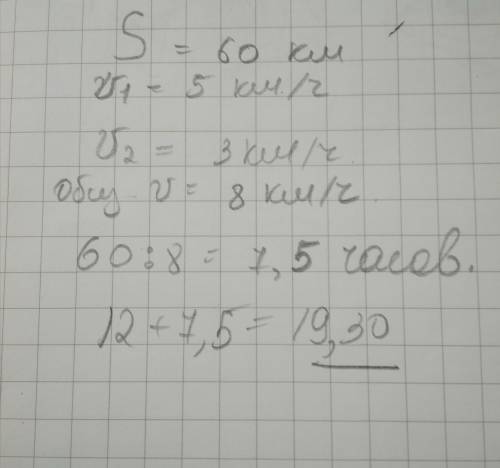 S = 60 км
v1 = 5 км/ч
v2 = 3 км/ч.
общ v = 8 км/ч.
60 : 8 = 7,5 часов.
12 + 7,5 = 19,30